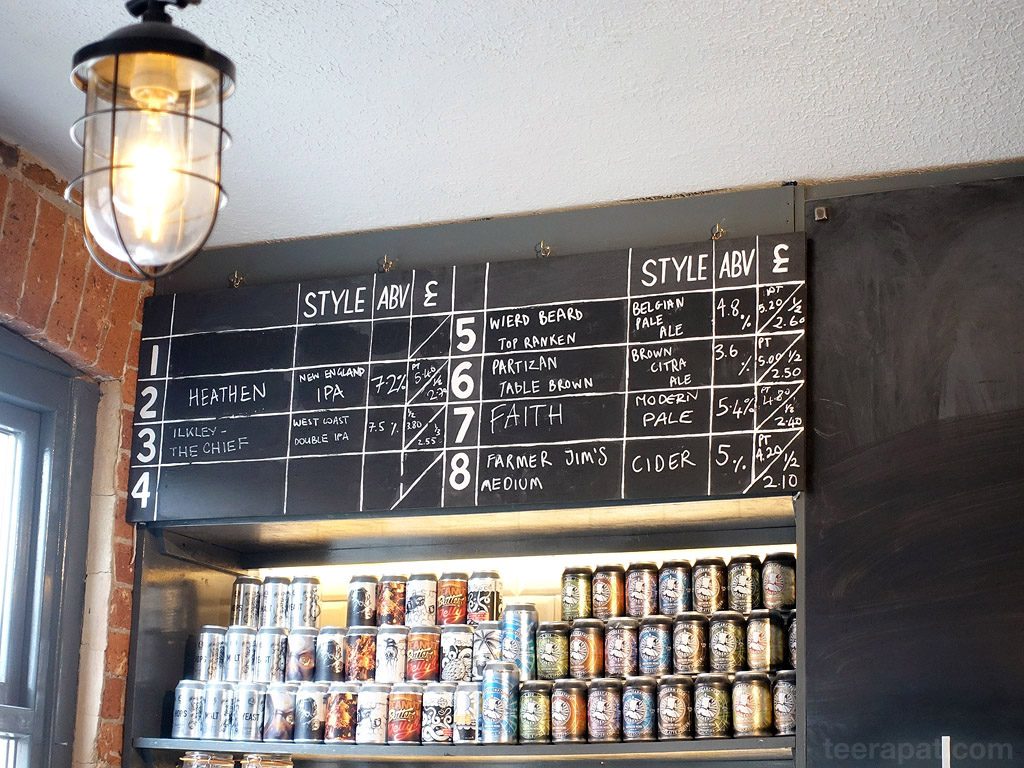 STYLE ABV £
1
2 HEATHEN NEW ENGLAND IPA 7.2% PT 5.40 ½ 2.70
3 ILKLEY - THE CHIEF WEST COAST DOUBLE IPA 7.5% ½ 3.80 ⅓ 2.55
4
STYLE ABV £
5 WIERD BEARD TOP RANKEN BELGIAN PALE ALE 4.8.% PT 5.20 ½ 2.60
6 PARTIZAN TABLE BROWN BROWN CITRA ALE 3.6 % PT 5.00 ½ 2.50
7 FAITH MODERN PALE 5.4% PT 4.80 ½ 2.40
8 FARMER JIM'S MEDIUM CIDER 5.% PT 4.20 ½ 2.10
YEAST
teerapat.com